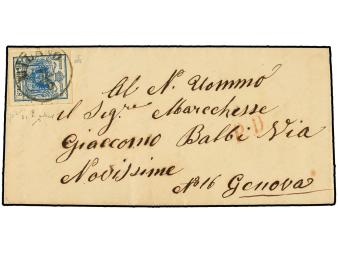 Al N. Uommo
il Sigre Marechesse
Giacomo Balbi Via
Novissime
No 16 Genova
P.D